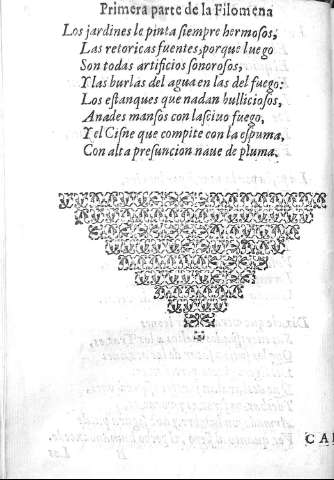 Primera parte de la Filomena
Los jardines le pinta ſiempre hermoſos,
Las retoricas fuentes, porque luego
Son todas artificios ſonoroſos,
Y las burlas del agua en las del fuego:
Los eſtanques que nadan bullicioſos,
Anades manſos con laſciuo fuego,
Y el Ciſne que compite con la eſpuma,
Con alta preſuncion naue de pluma.
CA